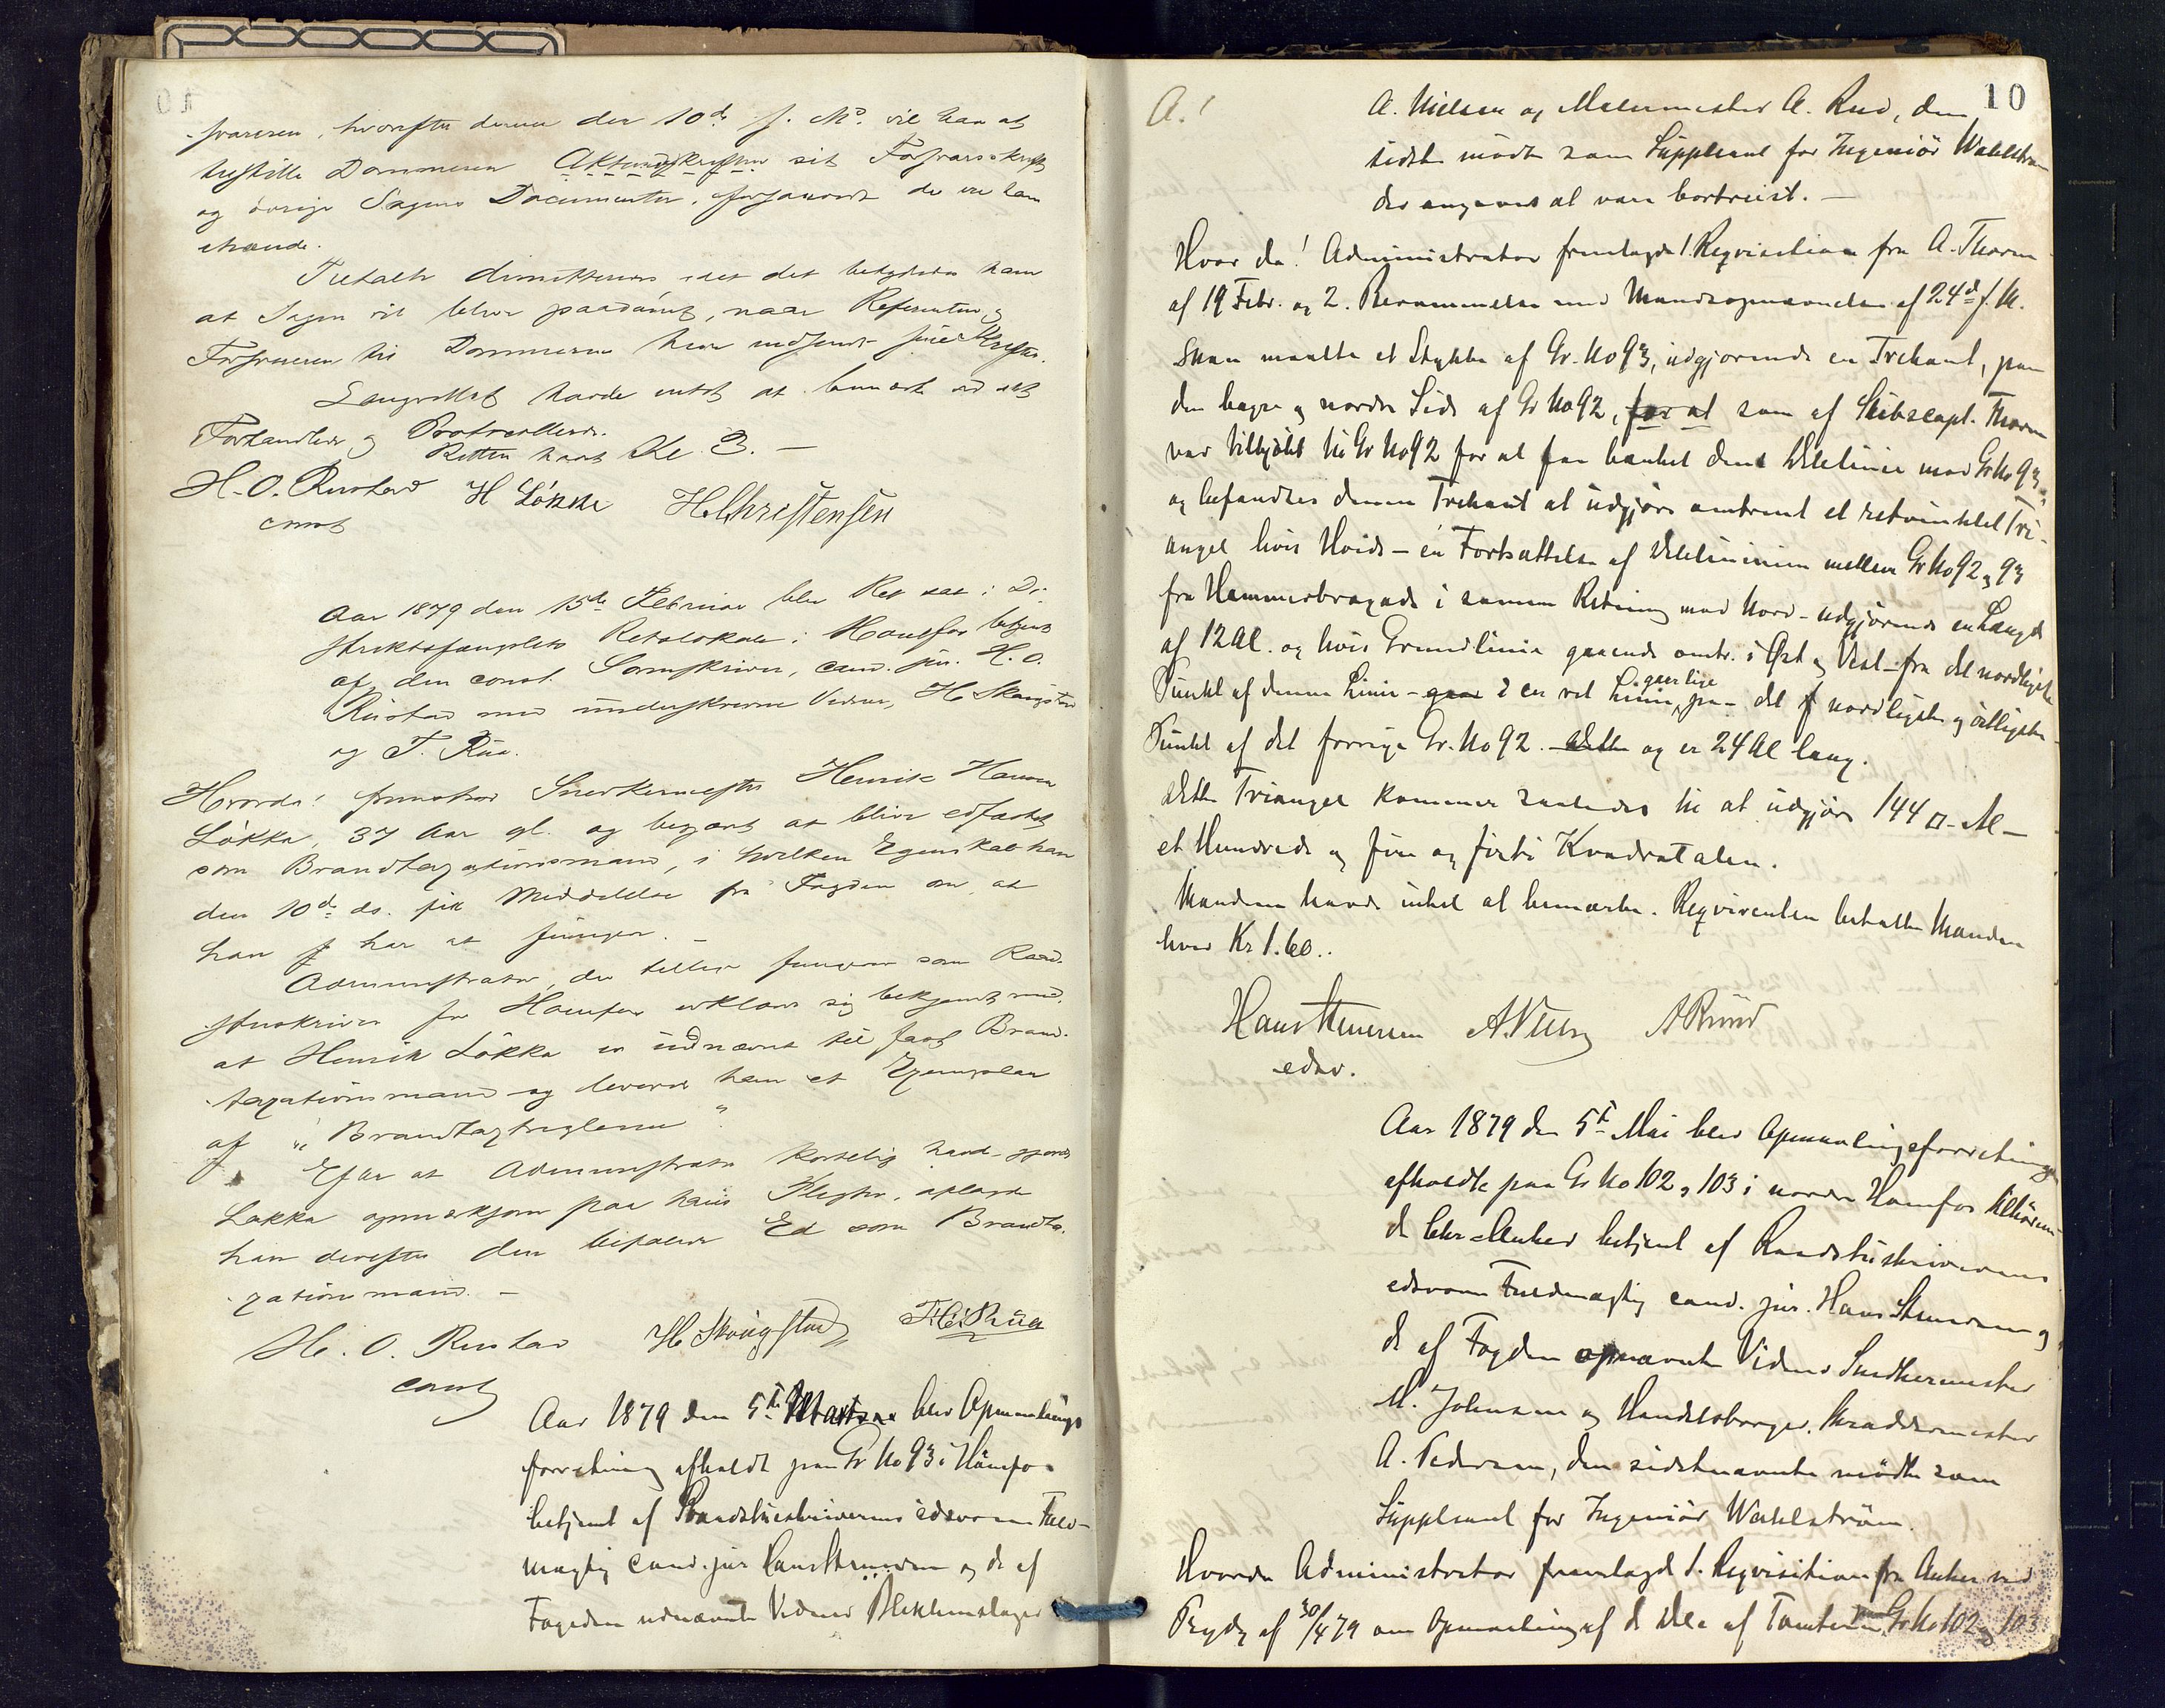 svareren, hvorefter denne den 10de f. M. vil have at
tilstille Dommeren Aktudskriften sit Forsvarsskrift
og øvrige Sagens Documenter, forsaavidt de ere ham
ihænde.
Tiltalte dimitteres, idet det betydedes ham
at Sagen vil blive paadømt, naar Referenten og
Forsvareren til Dommeren have indsendt sine Skrifter.
Laugrettet havde intet at bemærke ved det
Forhandlede og Protocollerede.
Retten hævet Kl. 3. —
H. O. Rustad H Løkke H Christensen
const
Aar 1879 den 15de Februar blev Ret sat i Di-
striktsfængslets Retslokale i Hønefos betjent
af den const. Sorenskriver, cand. jur. H. O.
Rustad med underskrevne Vidner, H. Skougstad
og T. Rua.
Hvorda! fremstod Snedkermester Henrik Hansen
Løkke, 37 Aar gl. og begjærte at blive edfæstet
som Brandtaxationsmand, i hvilken Egenskab han
den 10de ds. fik Meddelelse fra Fogden om, at
han har at fungere. —
Administrator, der tillige fungerer som Raad-
stuskriver for Hønefos erklærer sig bekjendt med,
at Henrik Løkke er udnævnt til fast Brand-
taxationsmand og leverede ham et Exemplar
af "Brandtaxtreglerne".
Efter at Administrator kortelig havde gjort
Løkke opmærksom paa hans Pligter, aflagde
han derefter den befalede Ed som Brandta-
xationsmand. —
H. O. Rustad H Skougstad T. H. Rua
const
Aar 1879 den 5te Marts blev Opmaalings
forretning afholdt paa Gr No 93 i Hønefos
betjent af Raadstueskriverens edsvorne Fuld-
mægtig cand. jur Hans Stenersen og de af
Fogeden udnævnte Vidner Blikkenslager
10
A!
A. Nielsen og Malermester A. Rud, den
sidste mødte som Suppleant for Ingeniör Wahlström
der angaves at være bortreist. —
Hvor da! Administrator fremlagde 1. Reqvisition fra A. Thorne
af 19 Febr. og 2. Berammelse med Mandsopnævnelse af 24de f. M.
Man maalte et Stykke af Gr. No 93, udgjørende en Trekant, paa
den bagre og nordre Side af Gr No 92, for at som af Skibscapt. Thorne
var tilkjöbt til Gr No 92 for at faa bænket dens Delelinie mod Gr No 93,
og befandtes denne Trekant at udgjöre omtrent et retvinklet Tri-
angel hvis Höide – en Fortsættelse af Delelinien mellem Gr No 92 og 93
fra Hammerbrogade i samme Retning mod Nord – udgjörende en Længde
af 12 Al. og hvis Grundlinie gaaende omtr. i Øst og Vest – fra det nordligste
Punkt af denne Linie – gaar i en ret Linie til det nordligste og østligste
Punkt af det forrige Gr. No 92. – Dette og er 24 Al lang.
Dette Triangel kommer saaledes til at udgjøre 144 □-Al –
et Hundrede og fire og förti Kvadratalen.
Mændene havde intet at bemærke. Reqvirenten betalte Mændene
hver Kr 1.60..
Hans Stenersen A. Nielsen A Ruud
edsv.
Aar 1879 den 5te Mai blev Opmaalingsforretning
afholdte paa Gr No 102 og 103 i nordre Hønefos tilhören-
de Chr. Anker betjent af Raadstuskriverens
edsvorne Fuldmægtig cand. jur. Hans Stenersen og
de af Fogden opnævnte Vidner Snedkermester
M. Johnsen og Handelsborger, Skræddermester
A. Pedersen, den sidstnævnte mödte som
Suppleant for Ingeniör Wahlström.
Hvorda Administrator fremlagde 1. Reqvisition fra Anker ved
Prydz af 30/4 79 om Opmaaling af de Dele af Tomterne Gr No 102 og 103